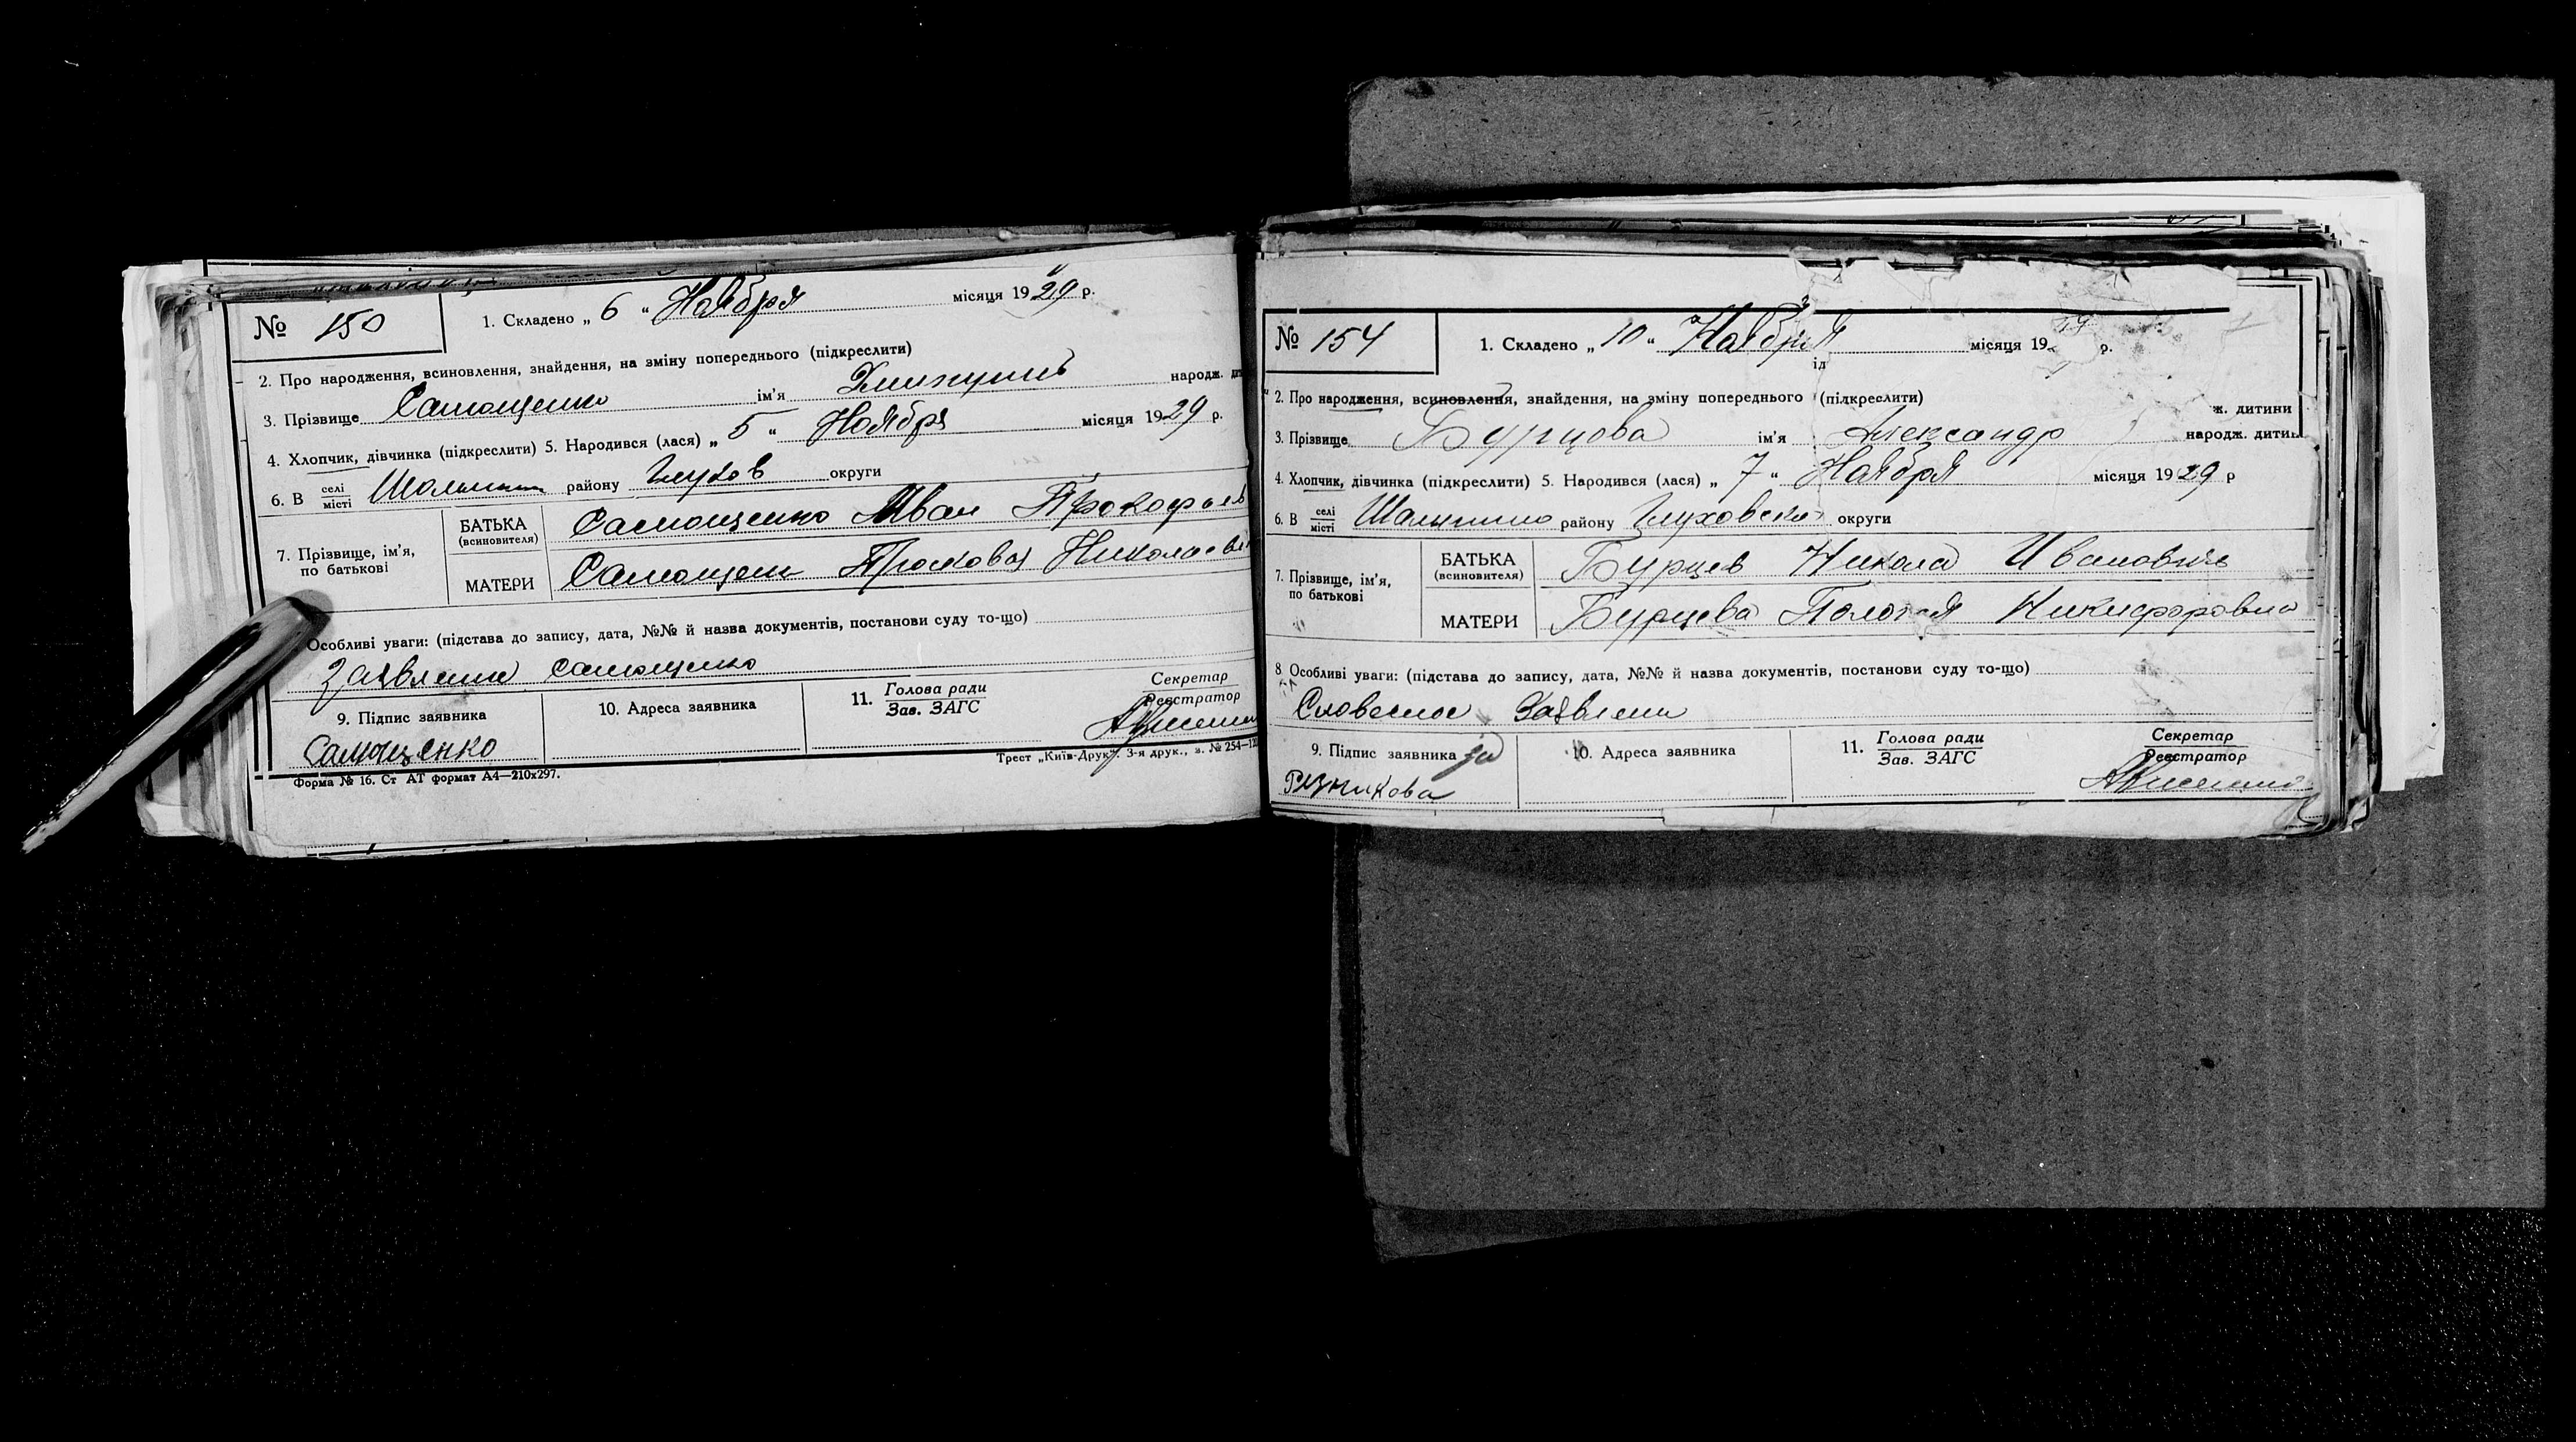 № 150
1. Складено „ 6 “ Ноября місяця 1929 р.
2. Про народження, всиновлення, знайдення, на зміну попереднього (підкреслити)
3. Прізвище Самощенко ім'я народж.
4. Хлопчик, дівчинка (підкреслити) 5. Народився (лася) „ 5 “ Ноября місяця 1929 р.
6. В селі місті району Глухов округи
7. Прізвище, ім'я, по батькові
БАТЬКА (всиновителя) Самощенко Иван Прокофьев
МАТЕРИ Самощен Прасковя Николаевн
Особливі уваги: (підстава до запису, дата, №№ й назва документів, постанови суду то-що)
Заявление Самощенко
9. Підпис заявника
Самощенко
10. Адреса заявника
11. Голова ради
Зав. ЗАГС
Секретар
Реєстратор
Форма № 16. Ст АТ формат А4—210x297.
Трест „Київ-Друк“. 3-я друк., з. № 254—
№ 154
1. Складено „ 10 “ Ноября місяця 19 р.
ід
2. Про народження, всиновлення, знайдення, на зміну попереднього (підкреслити)
ж. дитини
3. Прізвище Бурцова ім'я Александр народж. дитин
4. Хлопчик, дівчинка (підкреслити) 5. Народився (лася) „ 7 “ Ноября місяця 1929 р
6. В селі місті Шалыгино району Глуховско округи
7. Прізвище, ім'я, по батькові
БАТЬКА (всиновителя) Бурцев Никола Ивановичь
МАТЕРИ Бурцева Никифоровна
8 Особливі уваги: (підстава до запису, дата, №№ й назва документів, постанови суду то-що)
Словесное Заявлени
9. Підпис заявника за
Резникова
10. Адреса заявника
11. Голова ради
Зав. ЗАГС
Секретар
Реєстратор